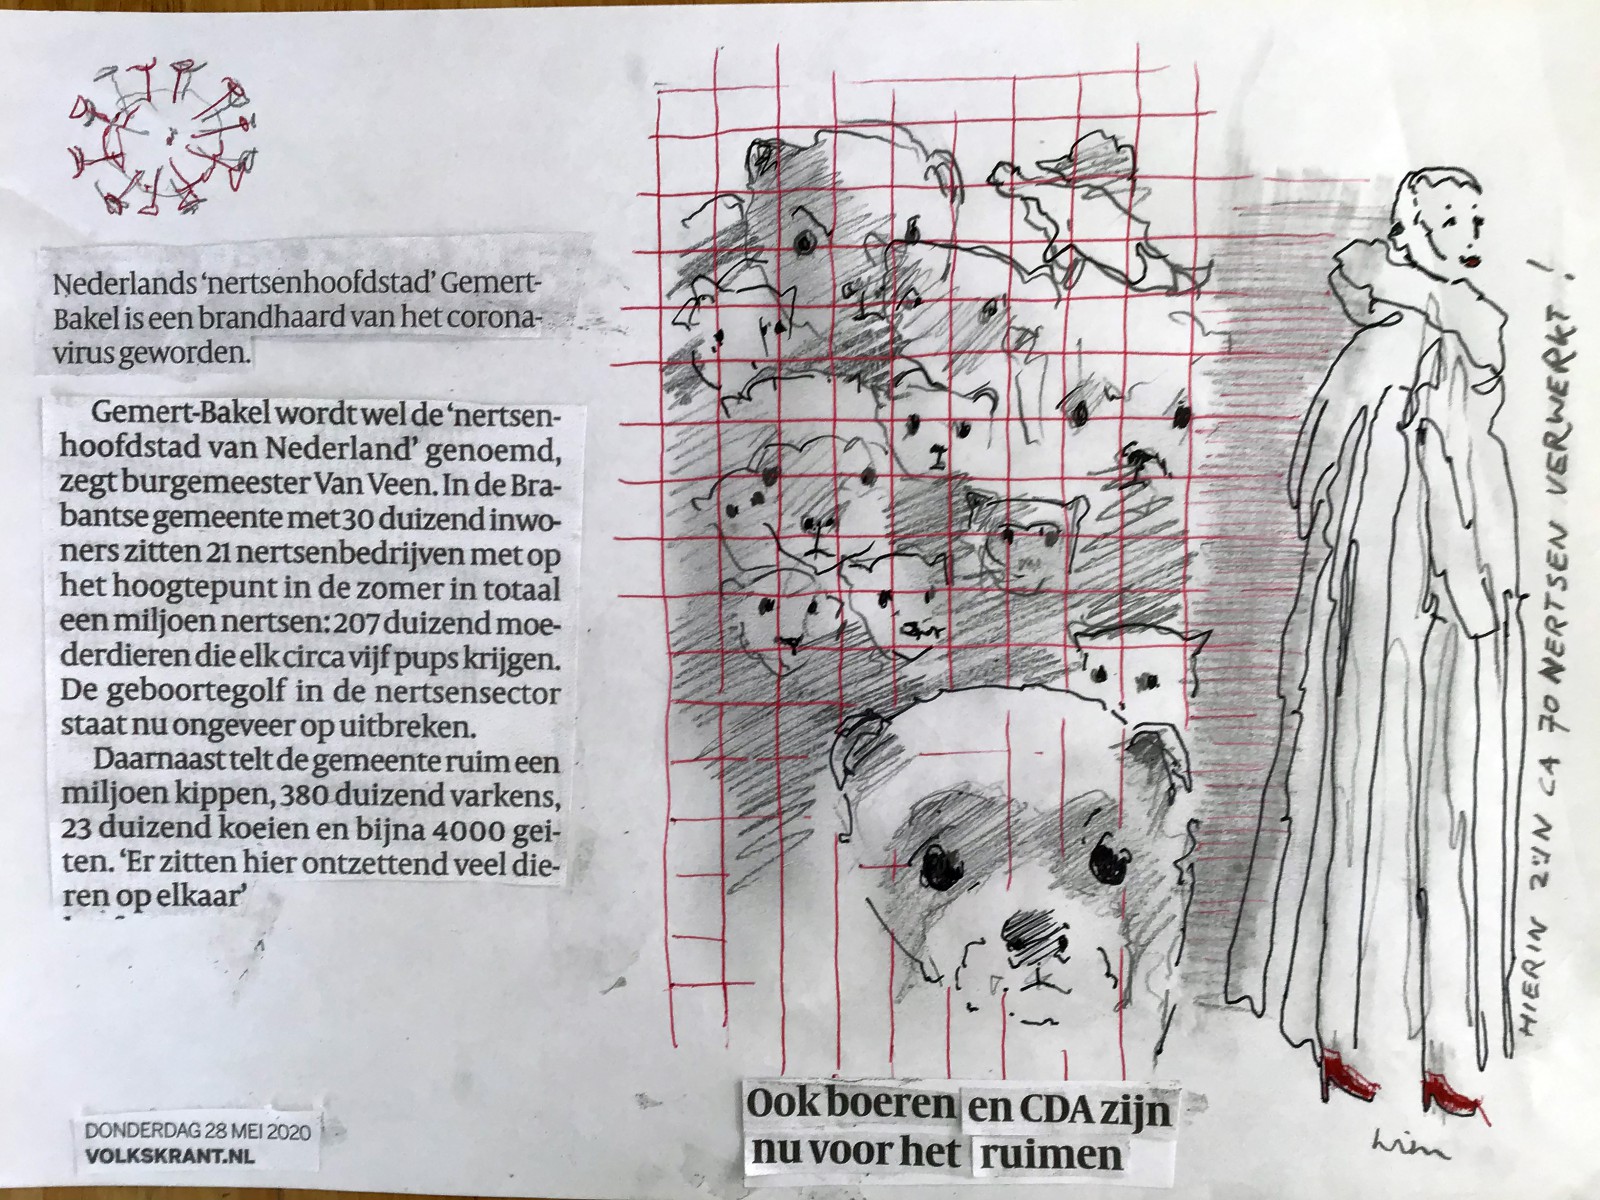 Nederlands ‘nertsenhoofdstad’ Gemert-
Bakel is een brandhaard van het corona-
virus geworden.
Gemert-Bakel wordt wel de ‘nertsen-
hoofdstad van Nederland’ genoemd,
zegt burgemeester Van Veen. In de Bra-
bantse gemeente met 30 duizend inwo-
ners zitten 21 nertsenbedrijven met op
het hoogtepunt in de zomer in totaal
een miljoen nertsen: 207 duizend moe-
derdieren die elk circa vijf pups krijgen.
De geboortegolf in de nertsensector
staat nu ongeveer op uitbreken.
Daarnaast telt de gemeente ruim een
miljoen kippen, 380 duizend varkens,
23 duizend koeien en bijna 4000 gei-
ten. ‘Er zitten hier ontzettend veel die-
ren op elkaar’
DONDERDAG 28 MEI 2020
VOLKSKRANT.NL
Ook boeren en CDA zijn
nu voor het ruimen
HIERIN ZIJN CA 70 NERTSEN VERWERKT!